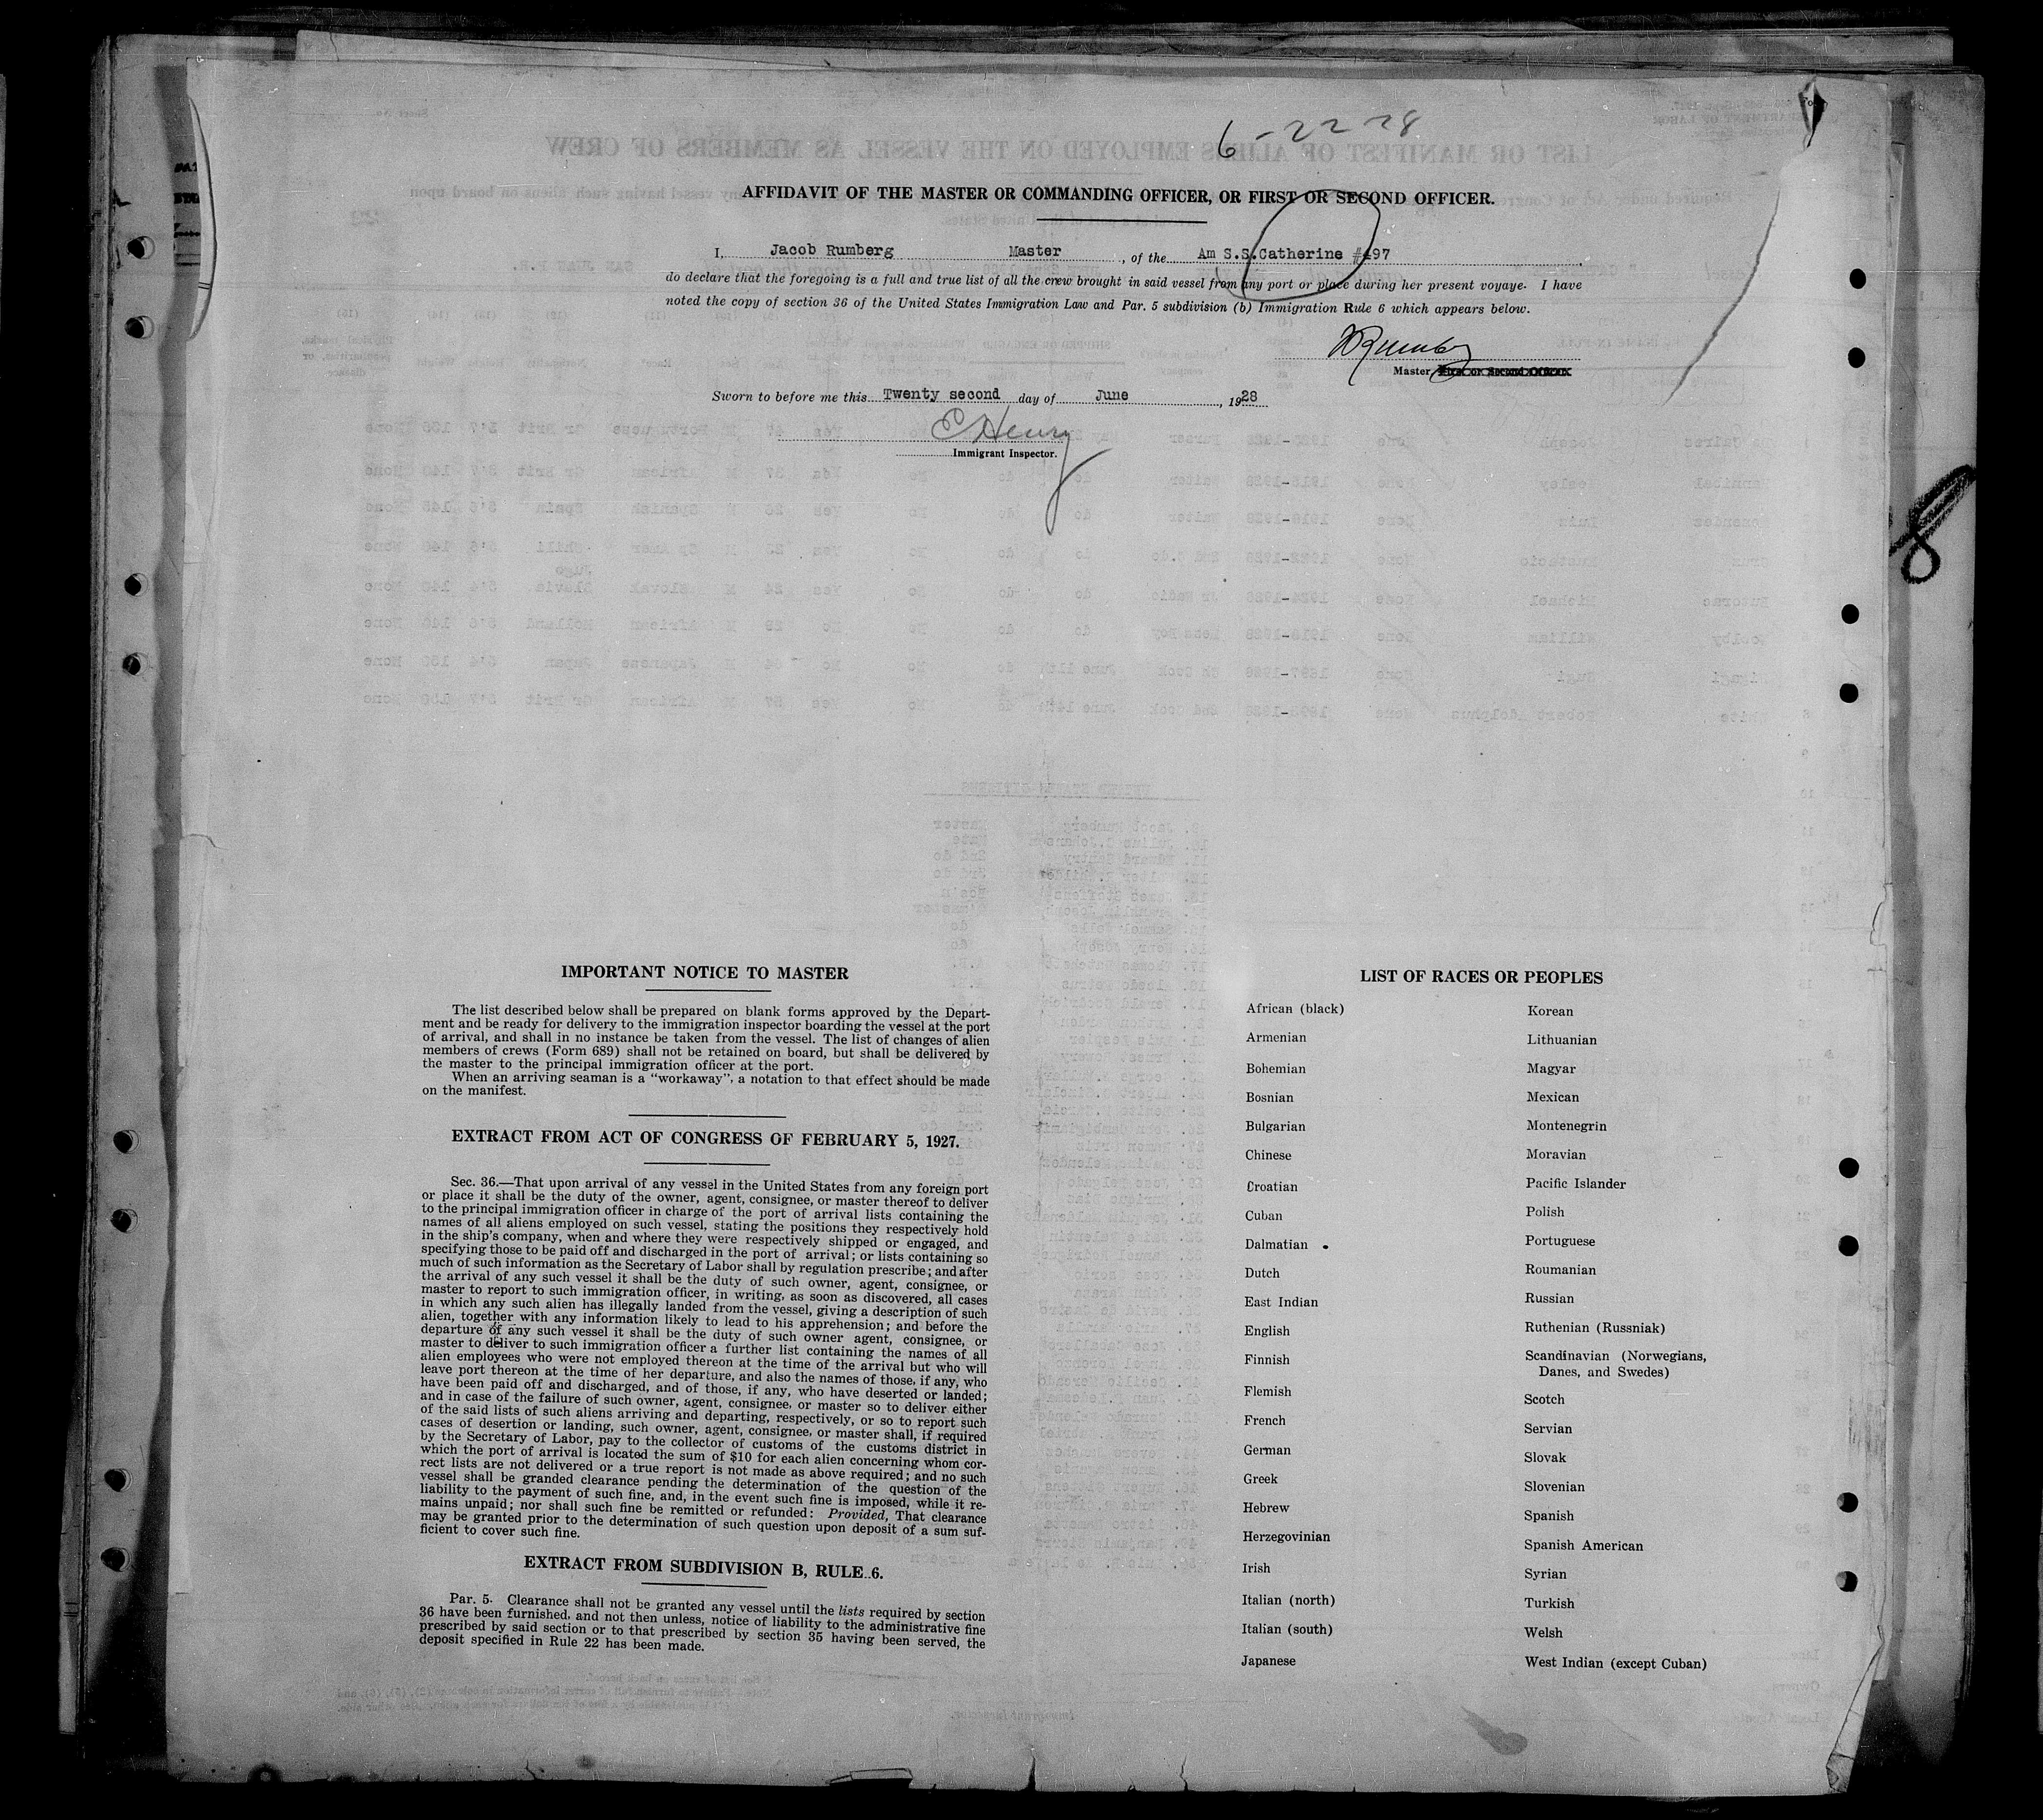 6-22-28
AFFIDAVIT OF THE MASTER OR COMMANDING OFFICER, OR FIRST OR SECOND OFFICER.
I, Jacob Rumberg Master, of the Am S.S.Catherine #497
do declare that the foregoing is a full and true list of all the crew brought in said vessel from any port or place during her present voyaye. I have
noted the copy of section 36 of the United States Immigration Law and Par. 5 subdivision (b) Immigration Rule 6 which appears below.
JRumberg
Master, First or Second Officer.
Sworn to before me this Twenty second day of June, 1928
C Henry
Immigrant Inspector.
IMPORTANT NOTICE TO MASTER
The list described below shall be prepared on blank forms approved by the Depart-
ment and be ready for delivery to the immigration inspector boarding the vessel at the port
of arrival, and shall in no instance be taken from the vessel. The list of changes of alien
members of crews (Form 689) shall not be retained on board, but shall be delivered by
the master to the principal immigration officer at the port.
When an arriving seaman is a "workaway", a notation to that effect should be made
on the manifest.
EXTRACT FROM ACT OF CONGRESS OF FEBRUARY 5, 1927.
Sec. 36.—That upon arrival of any vessel in the United States from any foreign port
or place it shall be the duty of the owner, agent, consignee, or master thereof to deliver
to the principal immigration officer in charge of the port of arrival lists containing the
names of all aliens employed on such vessel, stating the positions they respectively hold
in the ship's company, when and where they were respectively shipped or engaged, and
specifying those to be paid off and discharged in the port of arrival; or lists containing so
much of such information as the Secretary of Labor shall by regulation prescribe; and after
the arrival of any such vessel it shall be the duty of such owner, agent, consignee, or
master to report to such immigration officer, in writing, as soon as discovered, all cases
in which any such alien has illegally landed from the vessel, giving a description of such
alien, together with any information likely to lead to his apprehension; and before the
departure of any such vessel it shall be the duty of such owner agent, consignee, or
master to deliver to such immigration officer a further list containing the names of all
alien employees who were not employed thereon at the time of the arrival but who will
leave port thereon at the time of her departure, and also the names of those, if any, who
have been paid off and discharged, and of those, if any, who have deserted or landed;
and in case of the failure of such owner, agent, consignee, or master so to deliver either
of the said lists of such aliens arriving and departing, respectively, or so to report such
cases of desertion or landing, such owner, agent, consignee, or master shall, if required
by the Secretary of Labor, pay to the collector of customs of the customs district in
which the port of arrival is located the sum of $10 for each alien concerning whom cor-
rect lists are not delivered or a true report is not made as above required; and no such
vessel shall be granded clearance pending the determination of the question of the
liability to the payment of such fine, and, in the event such fine is imposed, while it re-
mains unpaid; nor shall such fine be remitted or refunded: Provided, That clearance
may be granted prior to the determination of such question upon deposit of a sum suf-
ficient to cover such fine.
EXTRACT FROM SUBDIVISION B, RULE 6.
Par. 5. Clearance shall not be granted any vessel until the lists required by section
36 have been furnished, and not then unless, notice of liability to the administrative fine
prescribed by said section or to that prescribed by section 35 having been served, the
deposit specified in Rule 22 has been made.
LIST OF RACES OR PEOPLES
African (black)
Armenian
Bohemian
Bosnian
Bulgarian
Chinese
Croatian
Cuban
Dalmatian
Dutch
East Indian
English
Finnish
Flemish
French
German
Greek
Hebrew
Herzegovinian
Irish
Italian (north)
Italian (south)
Japanese
Korean
Lithuanian
Magyar
Mexican
Montenegrin
Moravian
Pacific Islander
Polish
Portuguese
Roumanian
Russian
Ruthenian (Russniak)
Scandinavian (Norwegians,
Danes, and Swedes)
Scotch
Servian
Slovak
Slovenian
Spanish
Spanish American
Syrian
Turkish
Welsh
West Indian (except Cuban)